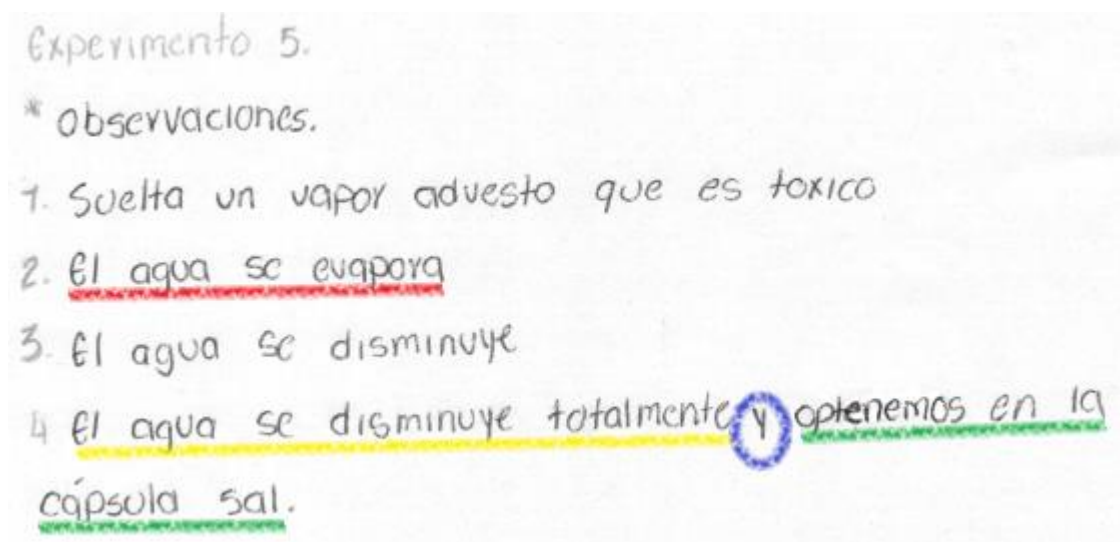 Experimento 5.
* Observaciones.
1. Suelta un vapor advesto que es toxico
2. El agua se evapora
3. El agua se disminuye
4 El agua se disminuye totalmente y optenemos en la
cápsula sal.